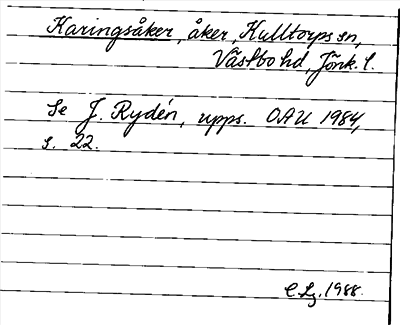 Karingsåker, åker, Kulltorps sn,
Västbo hd, Jönk. l.
Se J. Rydén, upps. OAU 1984,
s. 22.
C Lg. 1988.